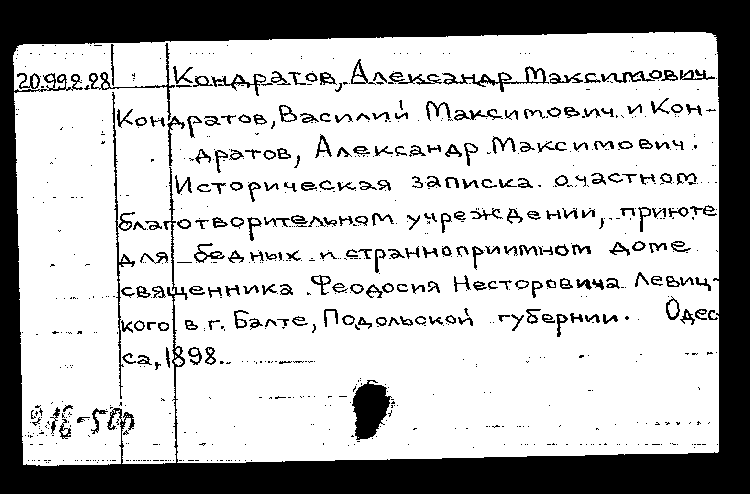 20.99.2.28 Кондратов, Александр Максимович
Кондратов, Василий Максимович и Кон-
дратов, Александр Максимович.
Историческая записка о частном
благотворительном учреждении, приюте
для бедных и странноприимном доме
священника Феодосия Несторовича Левиц-
кого в г. Балте, Подольской губернии. Одес-
са, 1898.